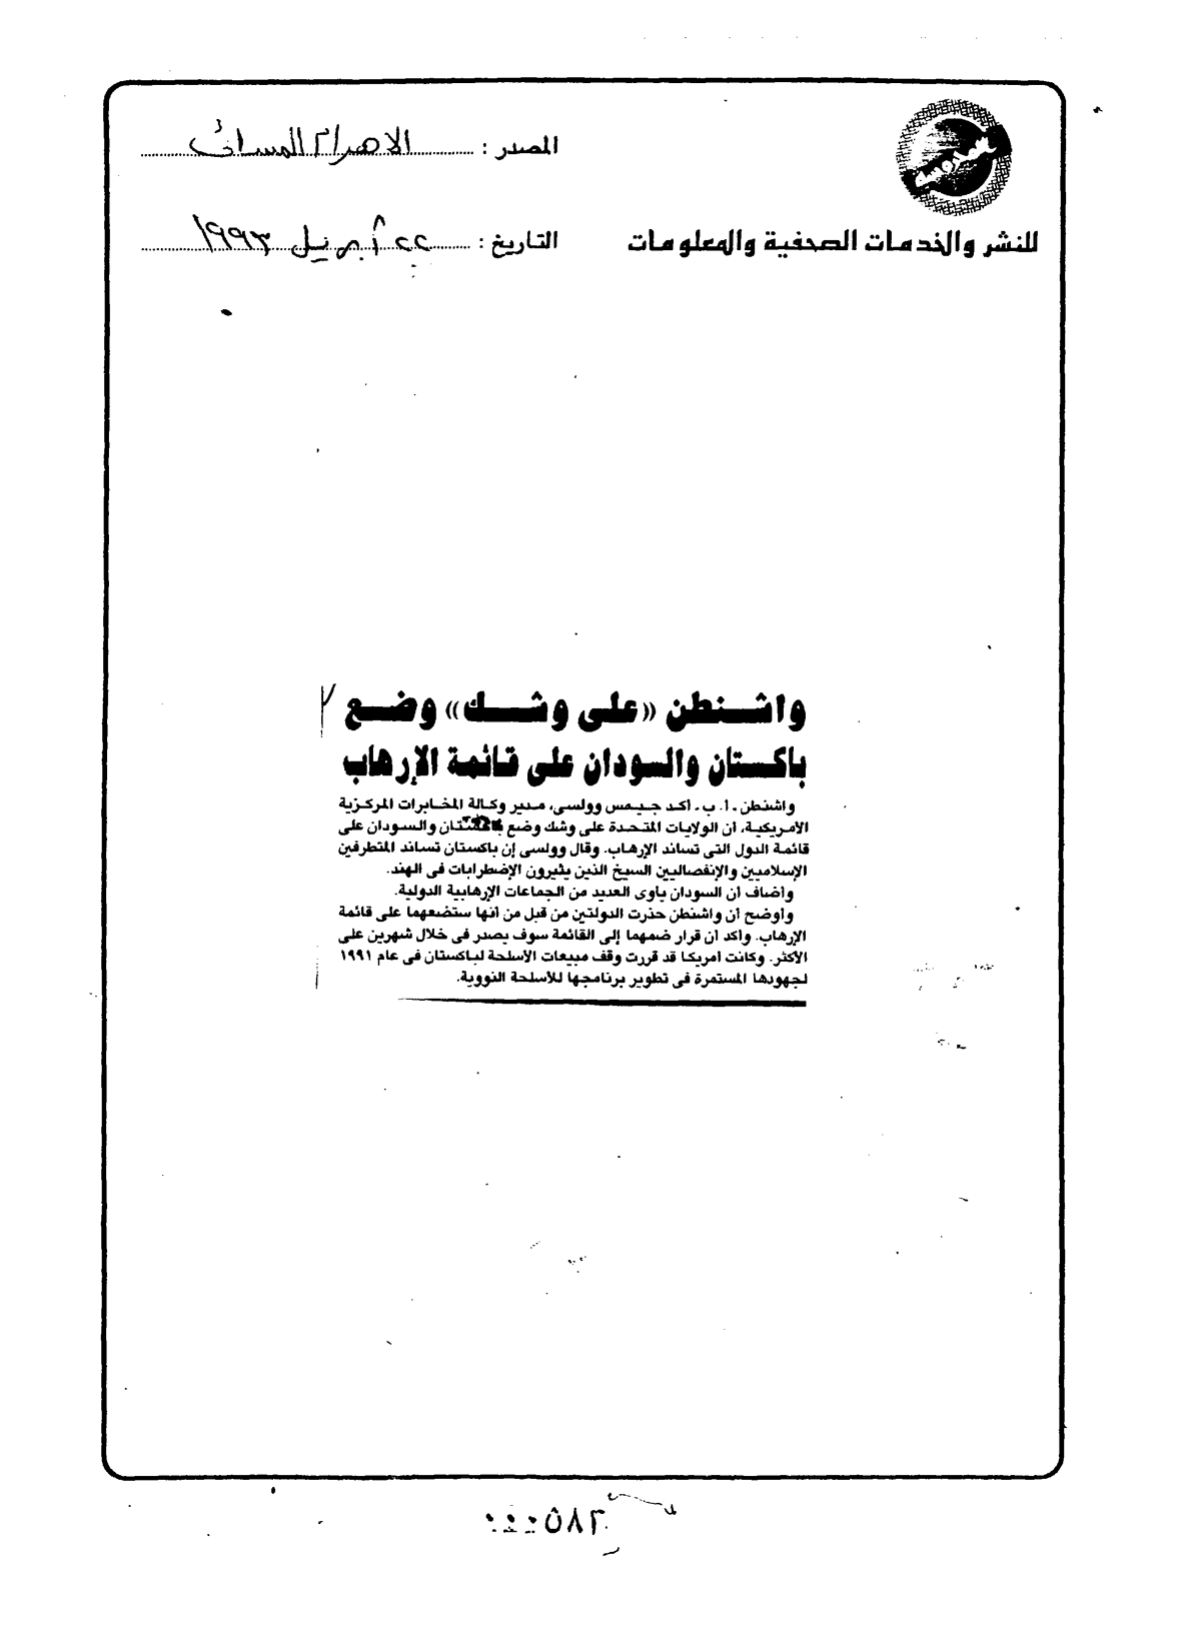 المصدر : الاهرام المسائى
للنشر والخدمات الصحفية والمعلومات
التاريخ : ٢٢ أبريل ١٩٩٣
واشنطن «على وشك» وضع
باكستان والسودان على قائمة الإرهاب
واشنطن ـ أ. ب ـ أكد جيمس وولسى، مدير وكالة المخابرات المركزية
الأمريكية، أن الولايات المتحدة على وشك وضع باكستان والسودان على
قائمة الدول التى تساند الإرهاب. وقال وولسى إن باكستان تساند المتطرفين
الإسلاميين والإنفصاليين السيخ الذين يثيرون الإضطرابات فى الهند.
وأضاف أن السودان يأوى العديد من الجماعات الإرهابية الدولية.
وأوضح أن واشنطن حذرت الدولتين من قبل من أنها ستضعهما على قائمة
الإرهاب. وأكد أن قرار ضمهما إلى القائمة سوف يصدر فى خلال شهرين على
الأكثر. وكانت أمريكا قد قررت وقف مبيعات الأسلحة لباكستان فى عام ١٩٩١
لجهودها المستمرة فى تطوير برنامجها للأسلحة النووية.